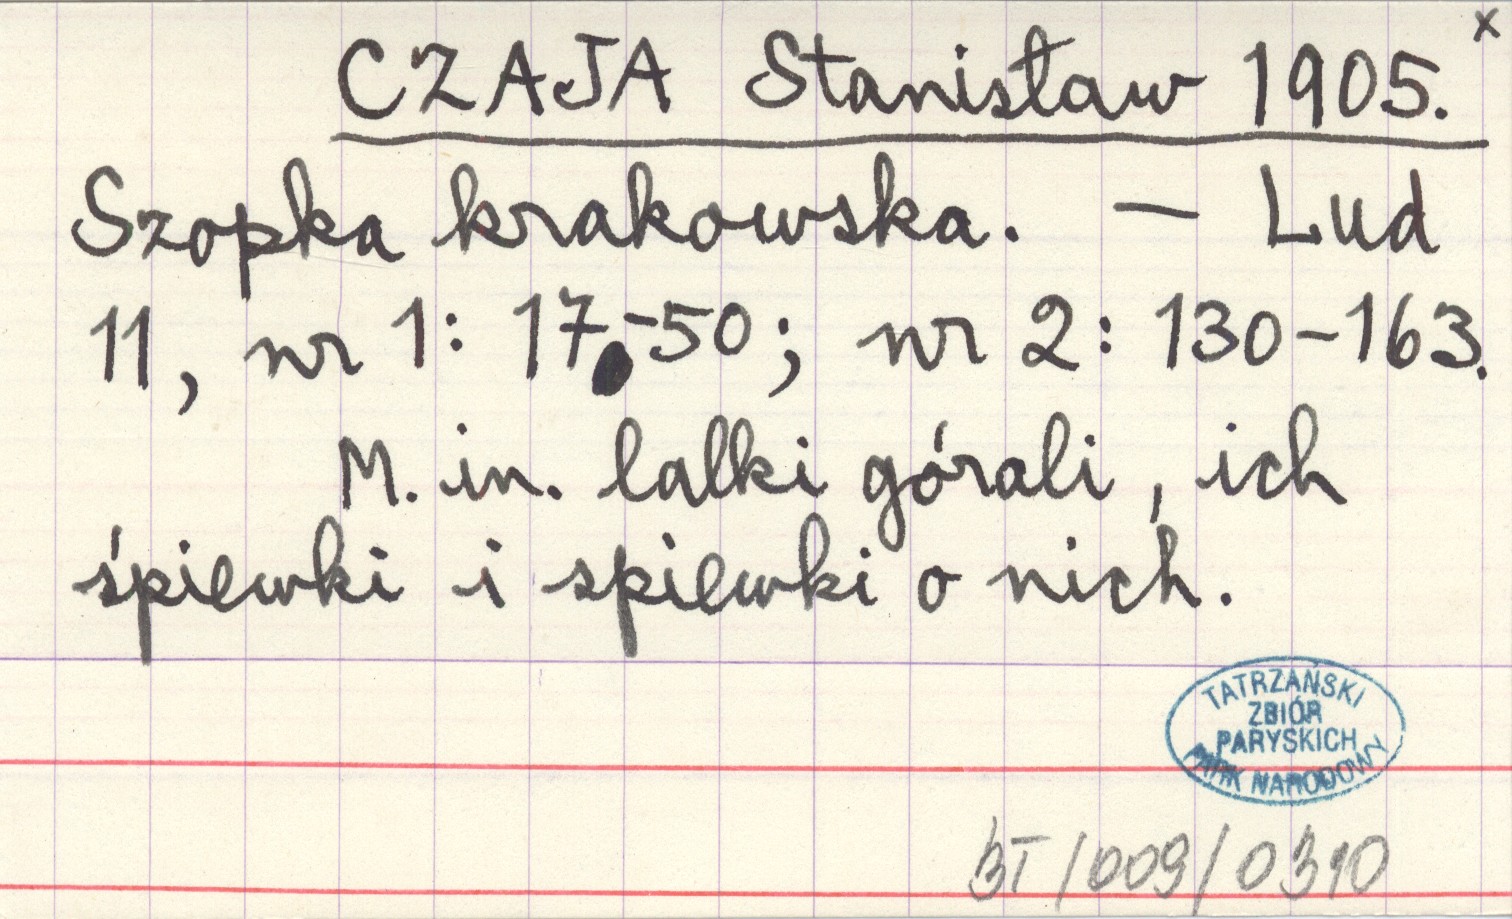 x
CZAJA Stanisław 1905.
Szopka krakowska. — Lud
11, nr 1: 17-50; nr 2: 130-163.
M. in. lalki górali, ich
śpiewki i spiewki o nich.
TATRZAŃSKI
ZBIÓR
PARYSKICH
PARK NARODOWY
BT/009/0310